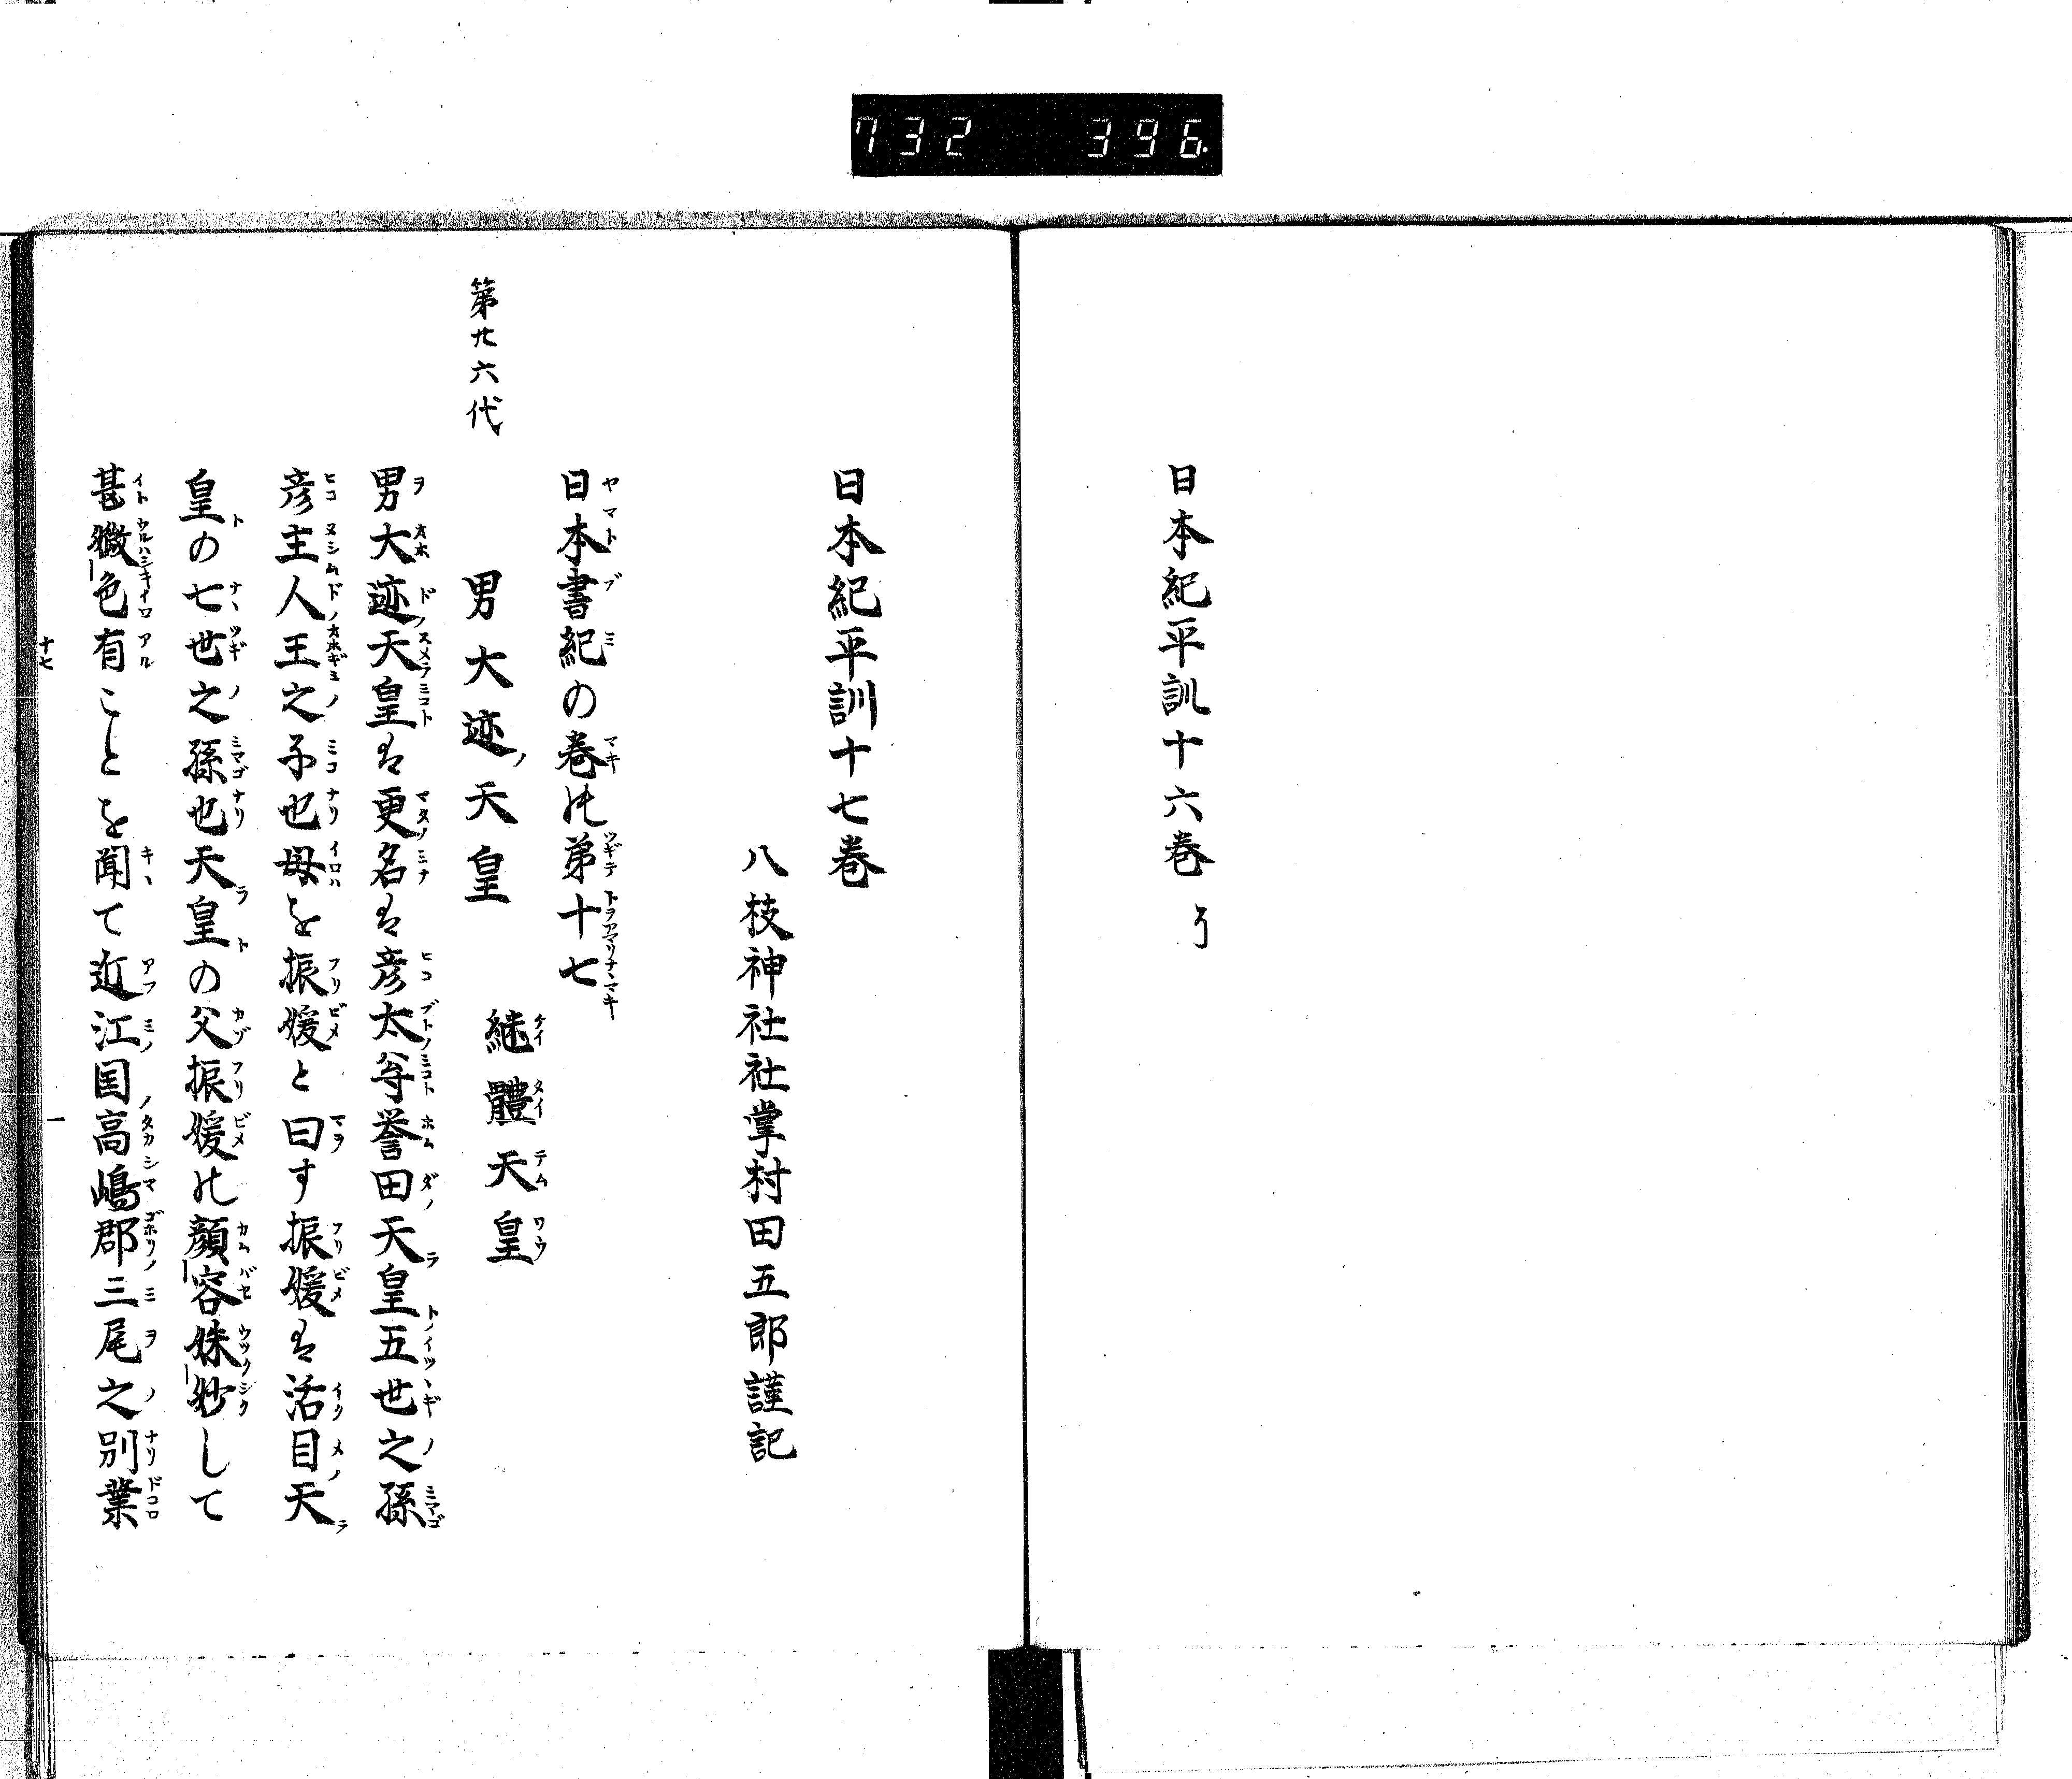 732 396
日本紀平訓十六巻 了
日本紀平訓十七巻
八枝神社社掌村田五郎謹記
日本書紀の巻の第十七
第廿六代 男大迹ノ天皇 継體天皇
男大迹天皇は更名は彦太尊誉田天皇五世之孫
彦主人王之子也母を振媛と曰す振媛は活目天
皇の七世之孫也天皇の父振媛の顔容姝妙して
甚媺色有ことを聞て近江国高嶋郡三尾之別業
十七
一